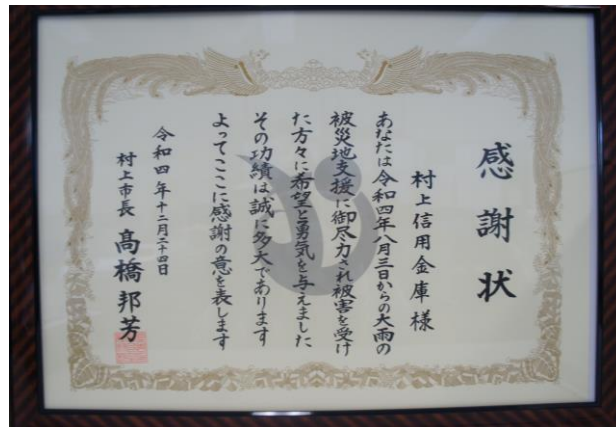 感謝状
村上信用金庫様
あなたは令和四年八月三日からの大雨の
被災地支援に御尽力され被害を受け
た方々に希望と勇気を与えました
その功績は誠に多大であります
よってここに感謝の意を表します
令和四年十二月二十四日
村上市長 髙橋邦芳